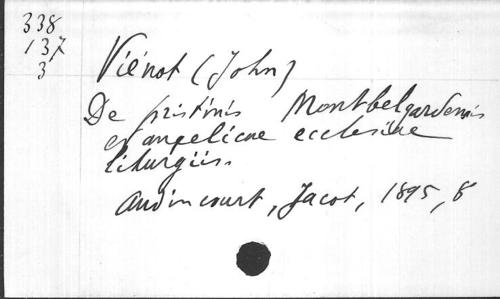 338
137
3
Viénot (John)
De pristinis Montbelgardensis
evangelicae ecclesiae
liturgiis.
Audincourt, Jacot, 1895, 8